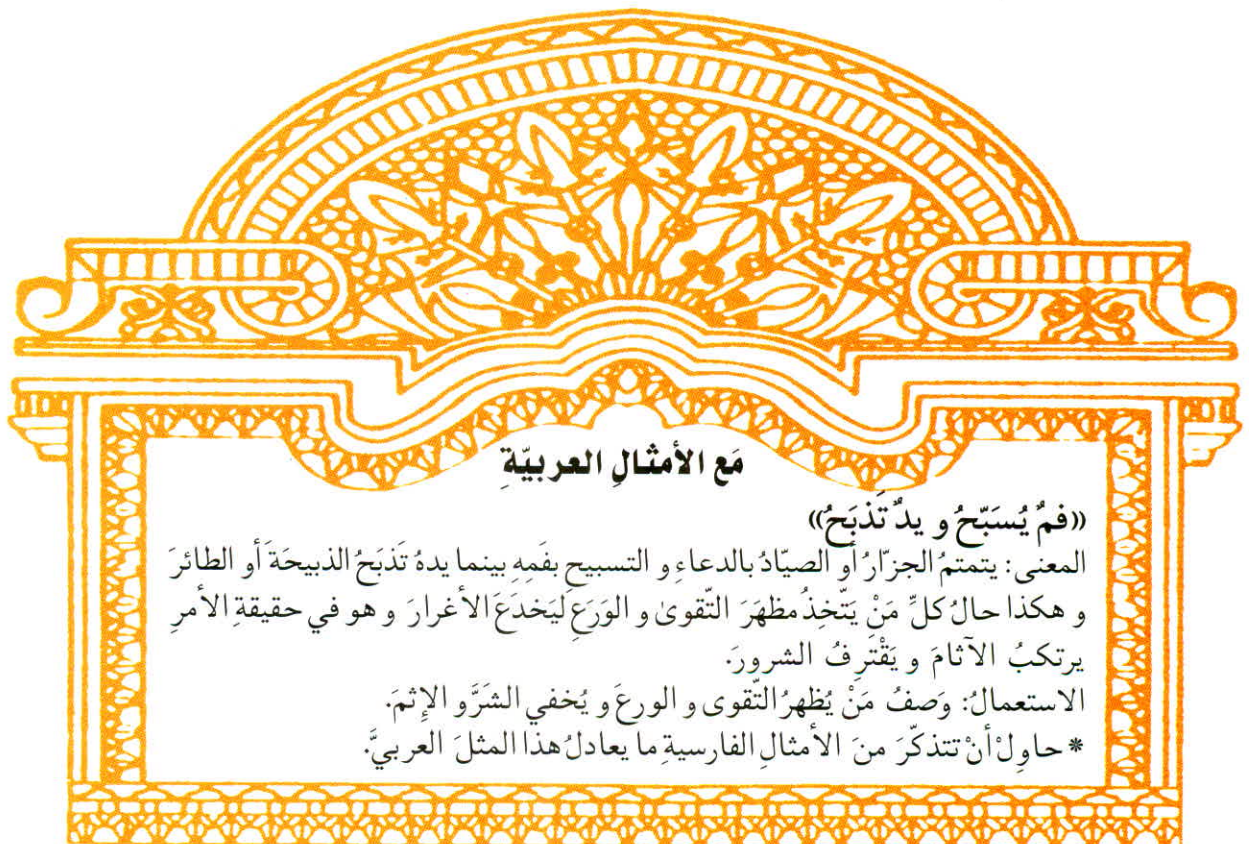 مَع الأمثالِ العربيّةِ
«فمٌ يُسَبّحُ و يدٌ تَذبَحُ»
المعنى: يتمتمُ الجزّارُ أو الصيّادُ بالدعاءِ و التسبيحِ بفَمِهِ بينما يدهُ تَذبَحُ الذبيحَةَ أو الطائرَ
و هكذا حالُ كلِّ مَنْ يَتّخِذُ مظهَرَ التّقوىٰ و الوَرَعِ لِيَخدَعَ الأغرارَ و هو في حقيقةِ الأمرِ
يرتكبُ الآثامَ و يَقْتَرِفُ الشرورَ.
الاستعمالُ: وَصفُ مَنْ يُظهرُ التّقوى و الورعَ و يُخفي الشَرَّ و الإثمَ.
* حاوِلْ أنْ تتذكّرَ منَ الأمثالِ الفارسيةِ ما يعادلُ هذا المثلَ العربيَّ.